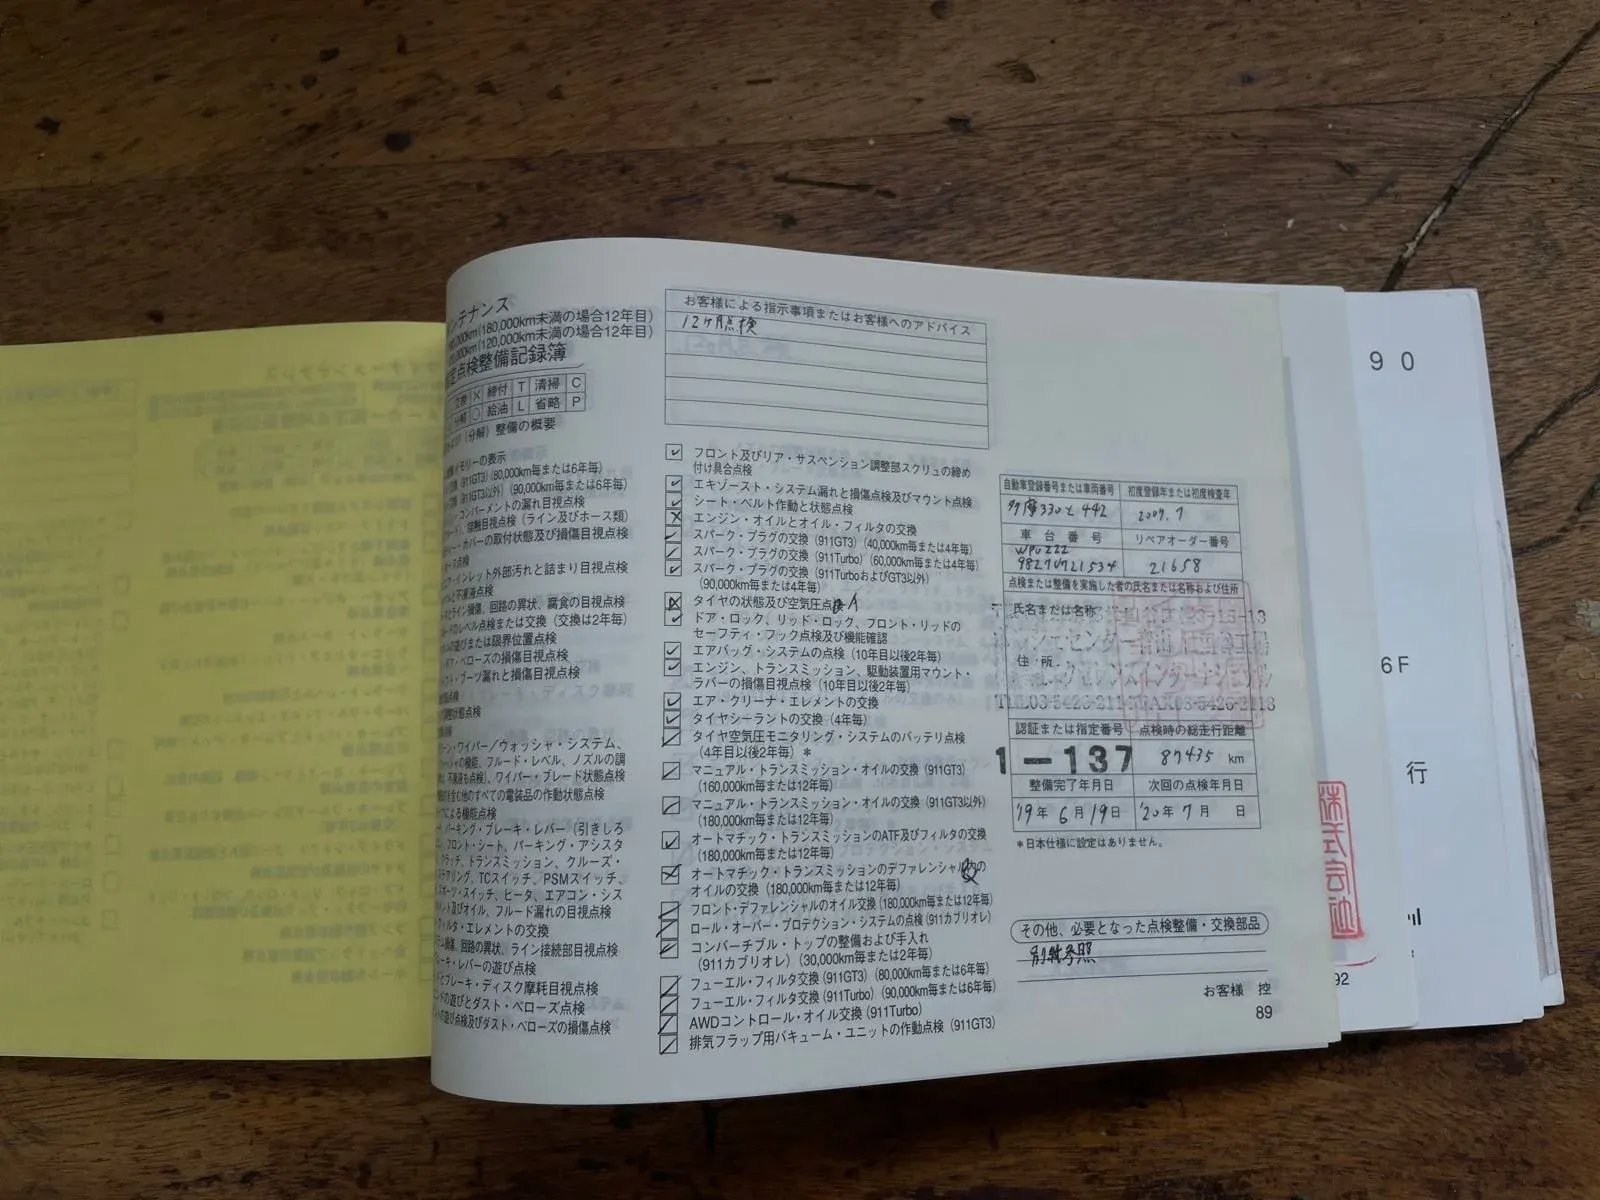 ンテナンス
000km(180,000km未満の場合12年目)
000km(120,000km未満の場合12年目)
定点検整備記録簿
交換 × 締付 T 清掃 C
分解 ○ 給油 L 省略 P
(分解)整備の概要
メモリーの表示
(911GT3)(80,000km毎または6年毎)
(911GT3以外)(90,000km毎または6年毎)
コンパーメントの漏れ目視点検
接触目視点検(ライン及びホース類)
カバーの取付状態及び損傷目視点検
ース点検
・インレット外部汚れと詰まり目視点検
ルと不凍液点検
ライン損傷、回路の異状、腐食の目視点検
ードのレベル点検または交換(交換は2年毎)
の遊びまたは限界位置点検
・ベローズの損傷目視点検
フト・ブーツ漏れと損傷目視点検
状態点検
ーン・ワイパー/ウォッシャ・システム、
ッシャの機能、フルード・レベル、ノズルの調
、不凍液も点検)、ワイパー・ブレード状態点検
を含む他のすべての電装品の作動状態点検
よる機能点検
パーキング・ブレーキ・レバー(引きしろ
、フロント・シート、パーキング・アシスタ
クラッチ、トランスミッション、クルーズ・
ステアリング、TCスイッチ、PSMスイッチ、
スポーツ・スイッチ、ヒータ、エアコン・シス
ント及びオイル、フルード漏れの目視点検
フィルタ・エレメントの交換
ム損傷、回路の異状、ライン接続部目視点検
レーキ・レバーの遊び点検
とブレーキ・ディスク摩耗目視点検
ドの遊びとダスト・ベローズ点検
トの遊び点検及びダスト・ベローズの損傷点検
お客様による指示事項またはお客様へのアドバイス
12ヶ月点検
フロント及びリア・サスペンション調整部スクリュの締め
付け具合点検
エキゾースト・システム漏れと損傷点検及びマウント点検
シート・ベルト作動と状態点検
エンジン・オイルとオイル・フィルタの交換
スパーク・プラグの交換(911GT3)(40,000km毎または4年毎)
スパーク・プラグの交換(911Turbo)(60,000km毎または4年毎)
スパーク・プラグの交換(911TurboおよびGT3以外)
(90,000km毎または4年毎)
タイヤの状態及び空気圧点検
ドア・ロック、リッド・ロック、フロント・リッドの
セーフティ・フック点検及び機能確認
エアバッグ・システムの点検(10年目以後2年毎)
エンジン、トランスミッション、駆動装置用マウント・
ラバーの損傷目視点検(10年目以後2年毎)
エア・クリーナ・エレメントの交換
タイヤシーラントの交換(4年毎)
タイヤ空気圧モニタリング・システムのバッテリ点検
(4年目以後2年毎)*
マニュアル・トランスミッション・オイルの交換(911GT3)
(160,000km毎または12年毎)
マニュアル・トランスミッション・オイルの交換(911GT3以外)
(180,000km毎または12年毎)
オートマチック・トランスミッションのATF及びフィルタの交換
(180,000km毎または12年毎)
オートマチック・トランスミッションのデファレンシャルの
オイルの交換(180,000km毎または12年毎)
フロント・デファレンシャルのオイル交換(180,000km毎または12年毎)
ロール・オーバー・プロテクション・システムの点検(911カブリオレ)
コンバーチブル・トップの整備および手入れ
(911カブリオレ)(30,000km毎または2年毎)
フューエル・フィルタ交換(911GT3)(80,000km毎または6年毎)
フューエル・フィルタ交換(911Turbo)(90,000km毎または6年毎)
AWDコントロール・オイル交換(911Turbo)
排気フラップ用バキューム・ユニットの作動点検(911GT3)
自動車登録番号または車両番号 初度登録年または初度検査年
多摩330と442 2007.7
車台番号 リペアオーダー番号
WP0ZZZ
98Z7U721534 21658
点検または整備を実施した者の氏名または名称および住所
氏名または名称
ポルシェセンター青山
住所
TEL03-5426-211 FAX03-5426-2118
認証または指定番号 点検時の総走行距離
1-137 87435 km
整備完了年月日 次回の点検年月日
'19年 6月19日 '20年 7月 日
*日本仕様に設定はありません。
その他、必要となった点検整備・交換部品
別紙参照
お客様 控
89
90
6F
行
株式会社
92